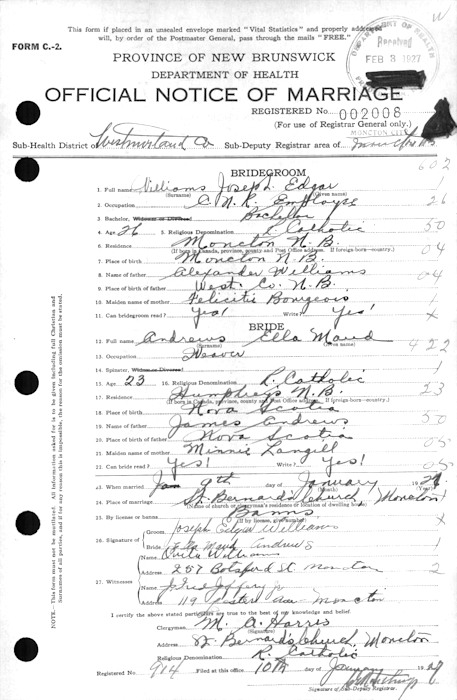 This form if placed in an unsealed envelope marked "Vital Statistics" and properly addressed
will, by order of the Postmaster General, pass through the mails "FREE."
FORM C.-2.
DEPARTMENT OF HEALTH
Received
FEB 3 1927
PROVINCE OF NEW BRUNSWICK
DEPARTMENT OF HEALTH
OFFICIAL NOTICE OF MARRIAGE
REGISTERED NO. 002008
(For use of Registrar General only.)
MONCTON CITY
Sub-Health District of Westmorland Co Sub-Deputy Registrar area of
602
BRIDEGROOM
1. Full name Williams Joseph Edgar 1
(Surname) (Given names)
2. Occupation C. N. R. Employee 26
3. Bachelor, Widower or Divorced Bachelor 1
4. Age 26 5. Religious Denomination R. Catholic 50
6. Residence Moncton N.B. 04
(If born in Canada, province, county and Post Office address. If foreign-born—country.)
7. Place of birth Moncton N.B.
8. Name of father Alexander Williams 04
9. Place of birth of father West. Co. N.B.
10. Maiden name of mother Felicitie Bourgeois 1
11. Can bridegroom read? Yes! Write? Yes!
BRIDE
12. Full name Andrews Ella Maud 422
(Surname) (Given names)
13. Occupation Weaver
14. Spinster, Widow or Divorced 1
15. Age 23 16. Religious Denomination R. Catholic 23
17. Residence Humphreys N.B.
(If born in Canada, province, county and Post Office address. If foreign-born—country.)
18. Place of birth Nova Scotia
19. Name of father James Andrews 50
20. Place of birth of father Nova Scotia 05
21. Maiden name of mother Minnie Langill
22. Can bride read? Yes! Write? Yes! 05
23. When married 9th day of January 19
24. Place of marriage St. Bernard's Church, Moncton
(Name of church or clergyman's residence or location of dwelling house)
25. By license or banns Banns
(If by license, give number)
Groom Joseph Edgar Williams
26. Signature of
Bride Ella Maud Andrews
Orila Williams 1
Address 257 Botsford St Moncton 2
27. Witnesses
J. Fred Jeffery jr
Address 119 Moncton
I certify the above stated particulars are true to the best of my knowledge and belief.
Clergyman M. A. Harris
(Signature)
Address St. Bernard's Church, Moncton
R. Catholic
Registered No. 914 Filed at this office 10th day of January 19
Signature of Sub-Deputy Registrar.
NOTE.—This form must not be mutilated. All information asked for is to be given including full Christian and
Surnames of all parties, and if for any reason this is impossible, the reason for the omission must be stated.